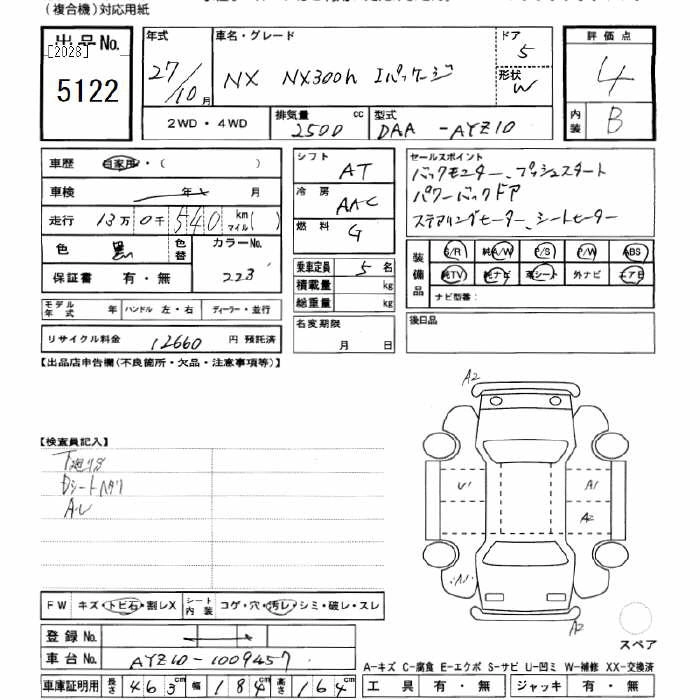 (複合機)対応用紙
出品No. [2028] 5122
年式 27/10月
車名・グレード NX NX300h Iパッケージ
ドア 5
形状 W
評価点 4
内装 B
2WD・4WD
排気量 2500 cc
型式 DAA-AYZ10
車歴 自家用・( )
車検 年 月
走行 13万0千540 km マイル( )
色 黒
色替
カラーNo. 223
保証書 有・無
シフト AT
冷房 AAC
燃料 G
乗車定員 5名
積載量 kg
総重量 kg
セールスポイント
バックモニター、プッシュスタート
パワーバックドア
ステアリングヒーター、シートヒーター
装備品 S/R 純A/W P/S P/W ABS
純TV 純ナビ 革シート 外ナビ エアB
ナビ型番:
モデル年式 年 ハンドル 左・右 ディーラー・並行
リサイクル料金 12660 円 預託済
名変期限 月 日
後日品
【出品店申告欄(不良箇所・欠品・注意事項等)】
A2
【検査員記入】
Dシートヘタリ
U1 A1
A2
A1
A2
FW キズ・トビ石・割レX シート内装 コゲ・穴・汚レ・シミ・破レ・スレ
スペア
登録No.
車台No. AYZ10-1009457
A-キズ C-腐食 E-エクボ S-サビ U-凹ミ W-補修 XX-交換済
車庫証明用 長さ 463 幅 184 高さ 164
工具 有・無 ジャッキ 有・無